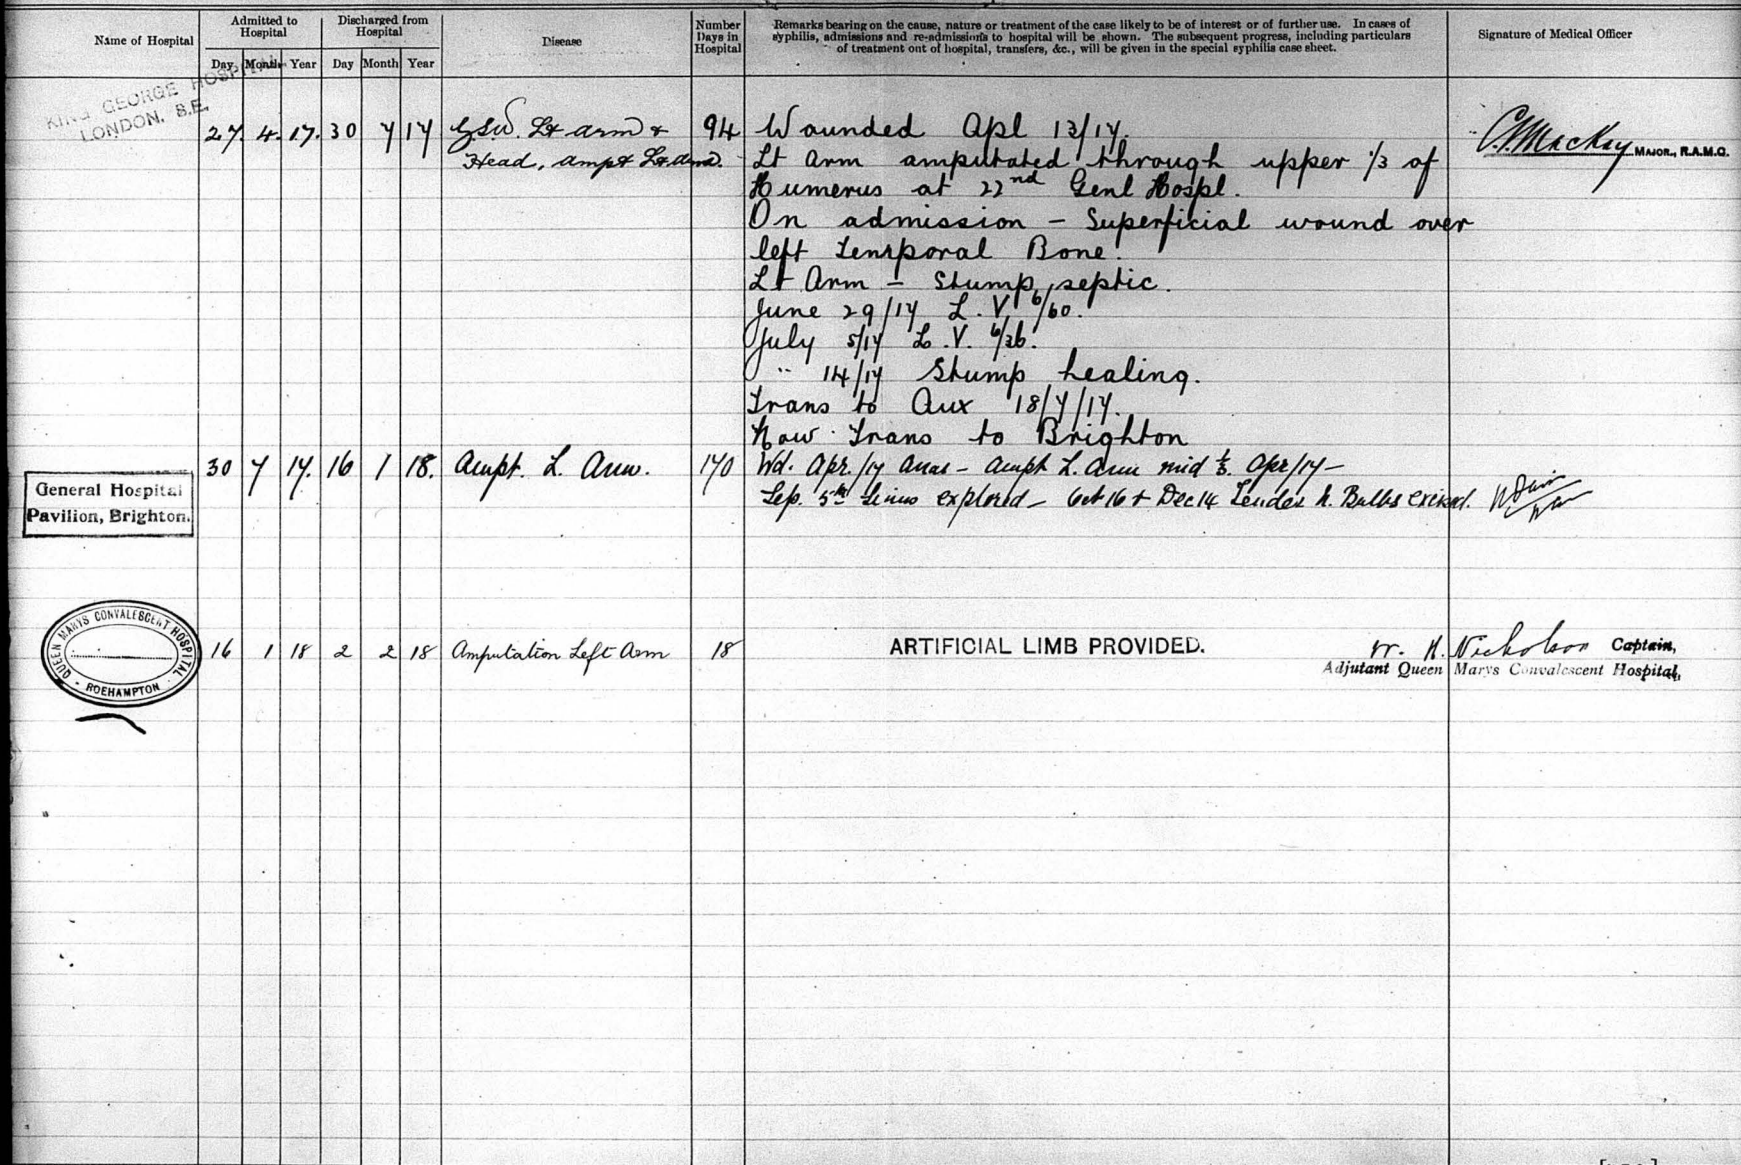 Name of Hospital
Admitted to Hospital
Discharged from Hospital
Disease
Number Days in Hospital
Remarks bearing on the cause, nature or treatment of the case likely to be of interest or of further use. In cases of
syphilis, admissions and re-admissions to hospital will be shown. The subsequent progress, including particulars
of treatment out of hospital, transfers, &c., will be given in the special syphilis case sheet.
Signature of Medical Officer
Day Month Year Day Month Year
KING GEORGE HOSPITAL
LONDON. S.E.
27. 4. 17. 30 7 17 GSW. Lt arm & 94 Wounded Apl 13/17. MacKay MAJOR., R.A.M.C.
Head, ampt Lt arm. Lt Arm amputated through upper 1/3 of
Humerus at 22nd Genl Hospl.
On admission – Superficial wound over
left Temporal Bone.
Lt Arm – Stump septic.
June 29/17 L. V. 6/60.
July 5/17 L. V. 6/36.
" 14/17 Stump healing.
Trans to Aux 18/7/17.
Now Trans to Brighton
General Hospital
Pavilion, Brighton.
30 7 17. 16 1 18. Ampt. L. Arm. 170 Wd. Apr./17 – Ampt L. arm mid ⅓. Apr/17 –
Sep. 5th Sinus explored – Oct 16 & Dec 14 Tender N. Bulbs excised.
QUEEN MARYS CONVALESCENT HOSPITAL
ROEHAMPTON
16 1 18 2 2 18 Amputation Left Arm 18 ARTIFICIAL LIMB PROVIDED. W. H. Nicholson Captain,
Adjutant Queen Marys Convalescent Hospital,